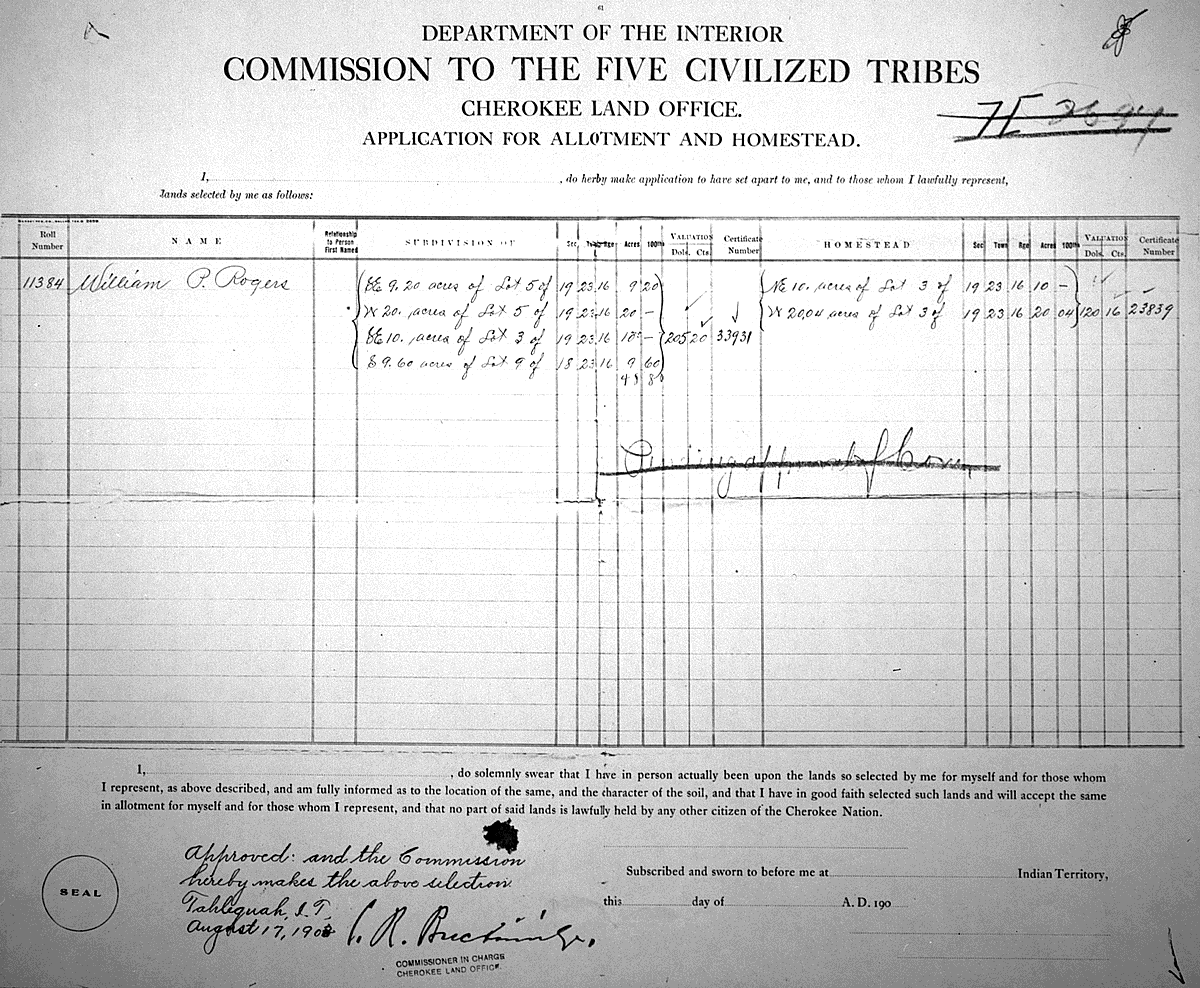 61
DEPARTMENT OF THE INTERIOR
COMMISSION TO THE FIVE CIVILIZED TRIBES
CHEROKEE LAND OFFICE.
APPLICATION FOR ALLOTMENT AND HOMESTEAD.
I, , do herby make application to have set apart to me, and to those whom I lawfully represent,
lands selected by me as follows:
Roll Number NAME Relationship to Person First Named SUBDIVISION OF Sec Town Rge Acres 100ths VALUATION Dols. Cts. Certificate Number HOMESTEAD Sec Town Rge Acres 100ths VALUATION Dols. Cts. Certificate Number
11384 William P. Rogers 9.20 acres of Lot 5 of 19 23 16 9 20 NE 10. acres of Lot 3 of 19 23 16 10 -
W 20. acres of Lot 5 of 19 23 16 20 - W 20.04 acres of Lot 3 of 19 23 16 20 04 120 16 23839
SE 10. acres of Lot 3 of 19 23 16 10 - 205 20 33931
S 9.60 acres of Lot 9 of 18 23 16 9 60
Pending approval of
I, , do solemnly swear that I have in person actually been upon the lands so selected by me for myself and for those whom
I represent, as above described, and am fully informed as to the location of the same, and the character of the soil, and that I have in good faith selected such lands and will accept the same
in allotment for myself and for those whom I represent, and that no part of said lands is lawfully held by any other citizen of the Cherokee Nation.
Approved: and the Commission
hereby makes the above selection
Tahlequah, I.T.
August 17, 190
SEAL
COMMISSIONER IN CHARGE
CHEROKEE LAND OFFICE.
Subscribed and sworn to before me at Indian Territory,
this day of A. D. 190